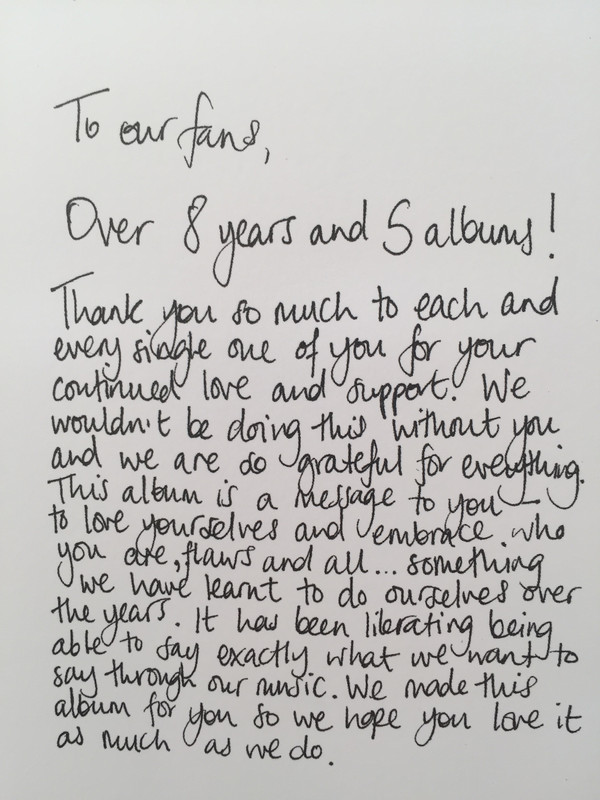 To our fans,
Over 8 years and 5 albums!
Thank you so much to each and
every single one of you for your
continued love and support. We
wouldn't be doing this without you
and we are so grateful for everything.
This album is a message to you –
to love yourselves and embrace who
you are, flaws and all... something
we have learnt to do ourselves over
the years. It has been liberating being
able to say exactly what we want to
say through our music. We made this
album for you so we hope you love it
as much as we do.